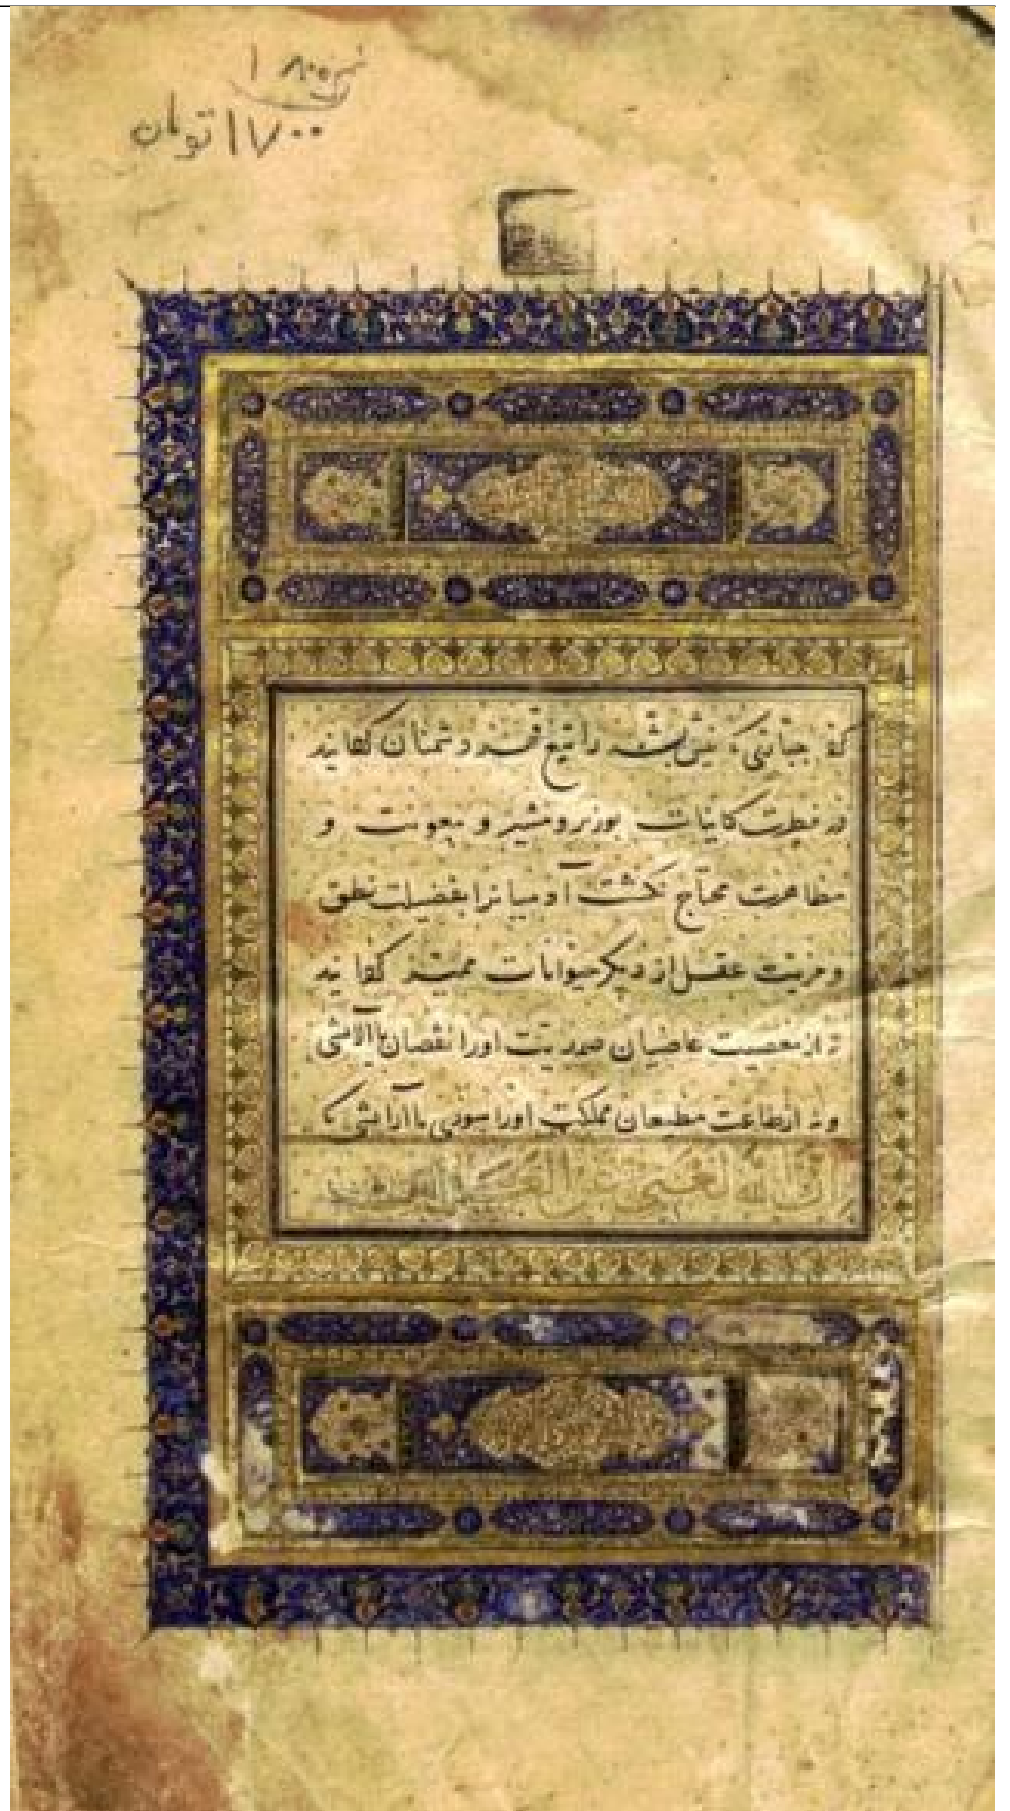 نمره ۱۸۰۰
۱۷۰۰ تومان
پشه را تیغ قهر دشمنان گردانید
در فطرت کاینات بوزیر و مشیر و معونت و
مظاهرت محتاج نکشت آدمیانرا بفضیلت نطق
و مزیت عقل از دیکر حیوانات ممیز گردانید
نه از معصیت عاصیان صمدیت اورا نقصان یا آلایشی
و نه از طاعت مطیعان مملکت اورا سودی یا آرایشی که
ان الله لغنی عن العالمین